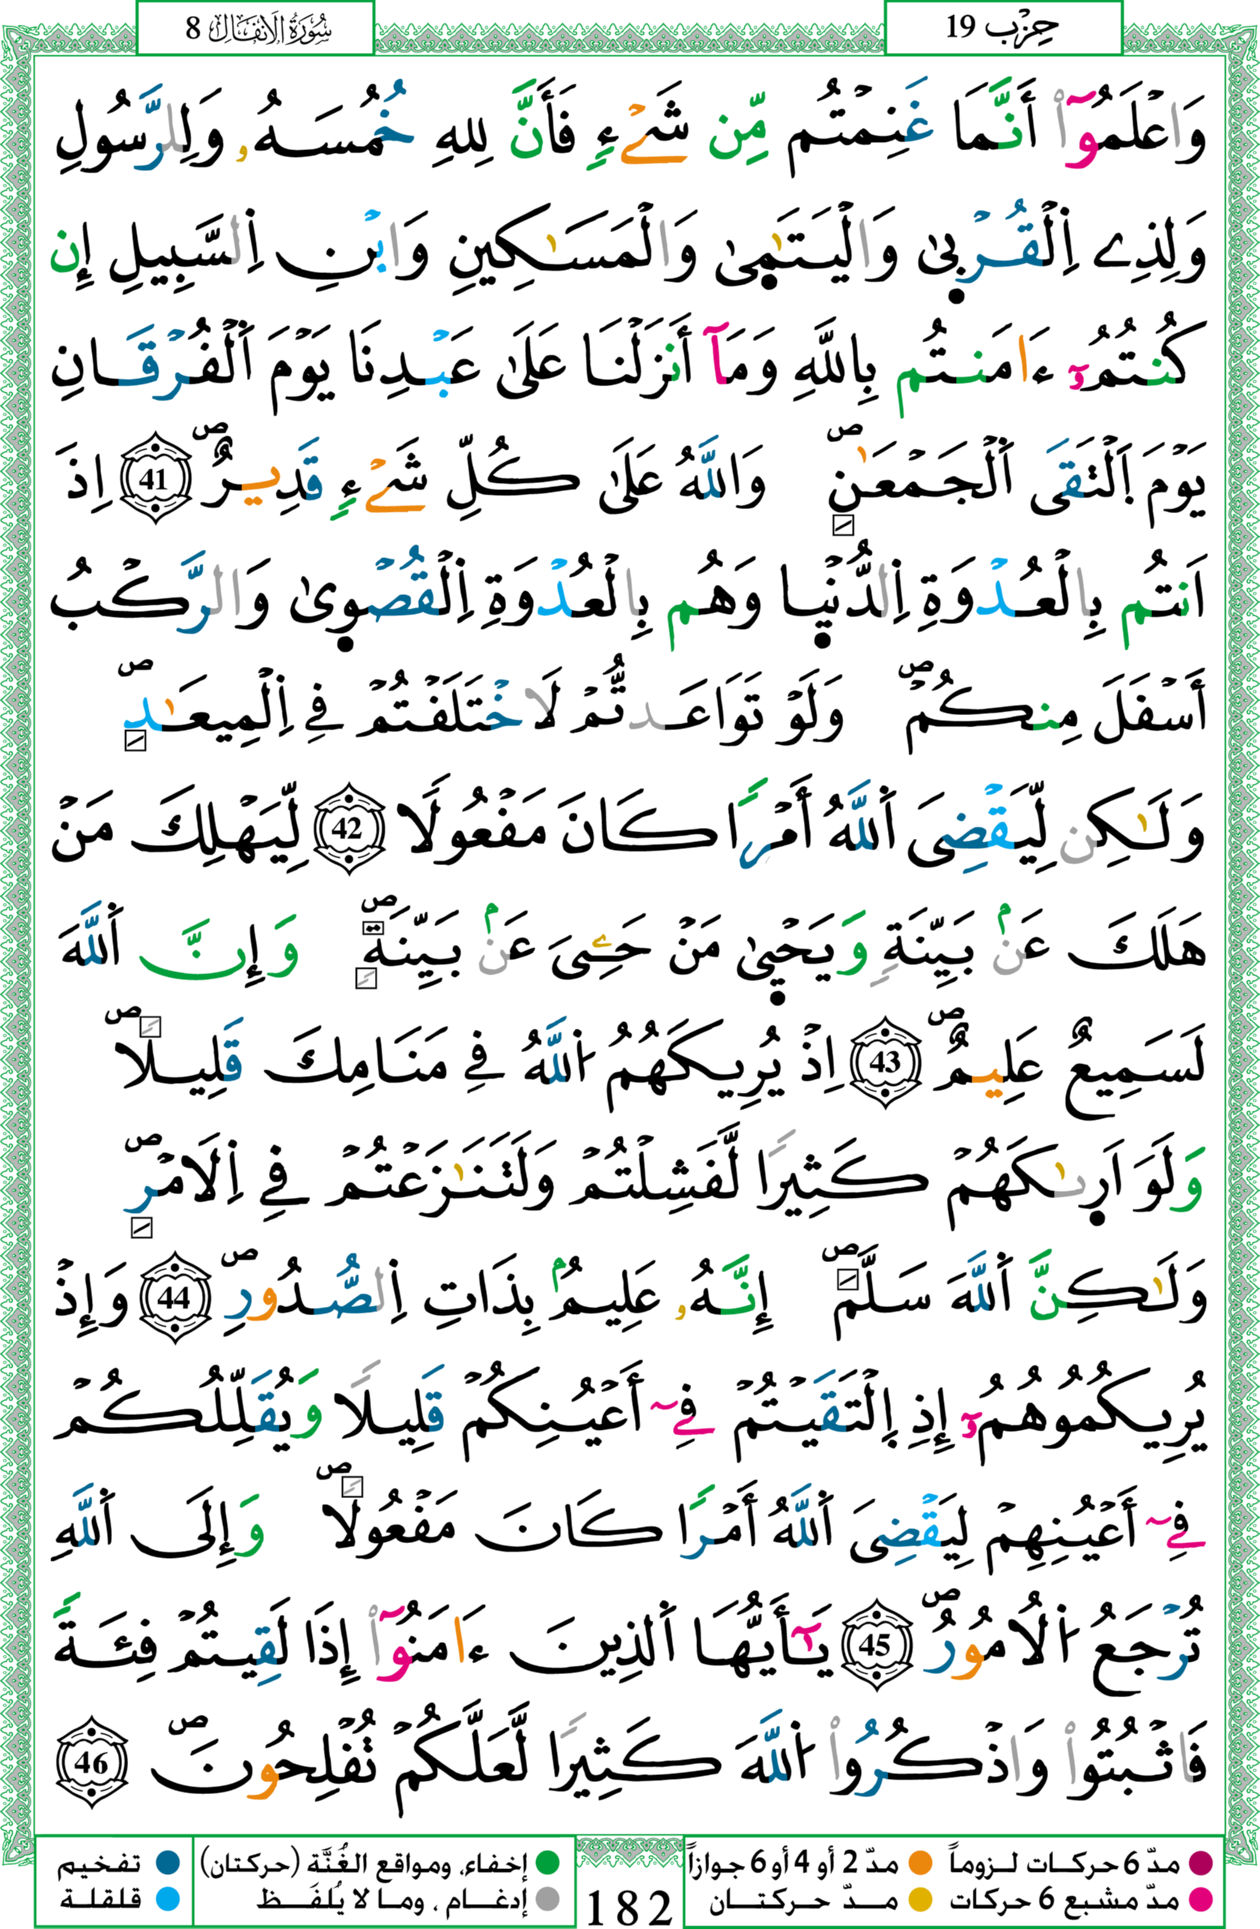 سُورَةُ الَانفَالِ 8
حِزْب 19
وَاعْلَمُوٓاْ أَنَّمَا غَنِمْتُم مِّن شَےْءٖ فَأَنَّ لِلهِ خُمُسَهُۥ وَلِلرَّسُولِ
وَلِذِے اِلْقُرْبۭىٰ وَالْيَتَٰمۭىٰ وَالْمَسَٰكِينِ وَابْنِ اِلسَّبِيلِ إِن
كُنتُمُۥٓ ءَامَنتُم بِاللَّهِ وَمَآ أَنزَلْنَا عَلَىٰ عَبْدِنَا يَوْمَ اَلْفُرْقَانِ
يَوْمَ اَلْتَقَى اَلْجَمْعَٰنِۖ وَاللَّهُ عَلَىٰ كُلِّ شَےْءٖ قَدِيرٌۖ 41 اِذَ
اَنتُم بِالْعُدْوَةِ اِلدُّنْيۭا وَهُم بِالْعُدْوَةِ اِلْقُصْوۭىٰ وَالرَّكْبُ
أَسْفَلَ مِنكُمْۖ وَلَوْ تَوَاعَدتُّمْ لَاخْتَلَفْتُمْ فِے اِلْمِيعَٰدِۖ
وَلَٰكِن لِّيَقْضِىَ اَللَّهُ أَمْراٗ كَانَ مَفْعُولاٗ 42 لِّيَهْلِكَ مَنْ
هَلَكَ عَنۢ بَيِّنَةٖ وَيَحْيۭىٰ مَنْ حَيِىَ عَنۢ بَيِّنَةٖۖ وَإِنَّ اَللَّهَ
لَسَمِيعٌ عَلِيمٌۖ 43 اِذْ يُرِيكَهُمُ اُللَّهُ فِے مَنَامِكَ قَلِيلاٗۖ
وَلَوَ اَرۭىٰكَهُمْ كَثِيراٗ لَّفَشِلْتُمْ وَلَتَنَٰزَعْتُمْ فِے اِلَامْرِۖ
وَلَٰكِنَّ اَللَّهَ سَلَّمَۖ إِنَّهُۥ عَلِيمُۢ بِذَاتِ اِلصُّدُورِۖ 44 وَإِذْ
يُرِيكُمُوهُمُۥٓ إِذِ اِلْتَقَيْتُمْ فِےٓ أَعْيُنِكُمْ قَلِيلاٗ وَيُقَلِّلُكُمْ
فِےٓ أَعْيُنِهِمْ لِيَقْضِىَ اَللَّهُ أَمْراٗ كَانَ مَفْعُولاٗۖ وَإِلَى اَللَّهِ
تُرْجَعُ اُلُامُورُۖ 45 يَٰٓأَيُّهَا اَلذِينَ ءَامَنُوٓاْ إِذَا لَقِيتُمْ فِئَةٗ
فَاثْبُتُواْ وَاذْكُرُواْ اُللَّهَ كَثِيراٗ لَّعَلَّكُمْ تُفْلِحُونَۖ 46
مدّ 6 حركات لـزوماً مدّ 2 أو 4 أو 6 جوازاً إخفاء، ومواقع الغُنَّة (حركتان) تفخيم
مدّ مشبع 6 حركات مـــدّ حـركتـــان إدغـام ، ومـا لا يُلفَـظ قلقلة
182